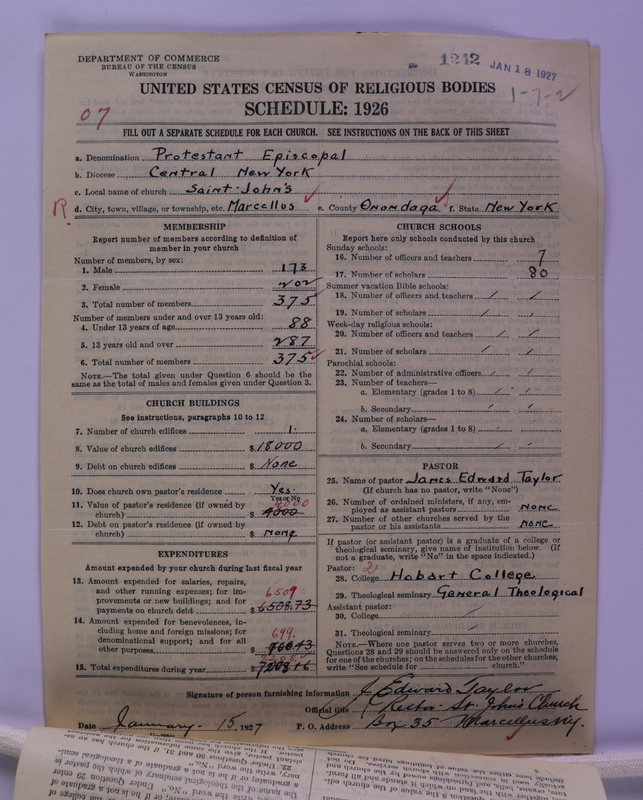 DEPARTMENT OF COMMERCE
BUREAU OF THE CENSUS
WASHINGTON
1242 JAN 18 1927
1-7-2
UNITED STATES CENSUS OF RELIGIOUS BODIES
SCHEDULE: 1926
07
FILL OUT A SEPARATE SCHEDULE FOR EACH CHURCH. SEE INSTRUCTIONS ON THE BACK OF THIS SHEET
a. Denomination Protestant Episcopal
b. Diocese Central New York
c. Local name of church Saint John's
R. d. City, town, village, or township, etc. Marcellus e. County Onondaga f. State New York
MEMBERSHIP
Report number of members according to definition of
member in your church
Number of members, by sex:
1. Male 173
2. Female 202
3. Total number of members 375
Number of members under and over 13 years old:
4. Under 13 years of age 88
5. 13 years old and over 287
6. Total number of members 375
NOTE.—The total given under Question 6 should be the
same as the total of males and females given under Question 3.
CHURCH BUILDINGS
See instructions, paragraphs 10 to 12
7. Number of church edifices 1.
8. Value of church edifices $ 18000
9. Debt on church edifices $ None
10. Does church own pastor's residence Yes
Yes or No
11. Value of pastor's residence (if owned by
church) $ 4000
12. Debt on pastor's residence (if owned by
church) $ none
EXPENDITURES
Amount expended by your church during last fiscal year
13. Amount expended for salaries, repairs,
and other running expenses; for im-
provements or new buildings; and for
payments on church debt 6509 $ 6508.73
14. Amount expended for benevolences, in-
cluding home and foreign missions; for
denominational support; and for all
other purposes 699.
15. Total expenditures during year $
CHURCH SCHOOLS
Report here only schools conducted by this church
Sunday schools:
16. Number of officers and teachers 7
17. Number of scholars 80
Summer vacation Bible schools:
18. Number of officers and teachers / /
19. Number of scholars / /
Week-day religious schools:
20. Number of officers and teachers / /
21. Number of scholars / /
Parochial schools:
22. Number of administrative officers / /
23. Number of teachers—
a. Elementary (grades 1 to 8) / /
b. Secondary / /
24. Number of scholars—
a. Elementary (grades 1 to 8) / /
b. Secondary / /
PASTOR
25. Name of pastor James Edward Taylor
(If church has no pastor, write "None")
26. Number of ordained ministers, if any, em-
ployed as assistant pastors none
27. Number of other churches served by the
pastor or his assistants none
If pastor (or assistant pastor) is a graduate of a college or
theological seminary, give name of institution below. (If
not a graduate, write "No" in the space indicated.)
Pastor: 2
28. College Hobart College
29. Theological seminary General Theological
Assistant pastor:
30. College /
31. Theological seminary /
NOTE.—Where one pastor serves two or more churches,
Questions 28 and 29 should be answered only on the schedule
for one of the churches; on the schedules for the other churches,
write "See schedule for church."
Signature of person furnishing information J. Edward Taylor
Official title Rector St. John's Church
Date January 15, 1927 P. O. Address Box 35 Marcellus N.Y.